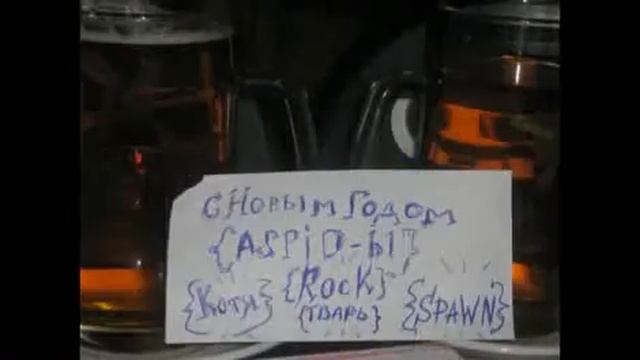 С Новым Годом
{ASPiD-Ы}
{Котя} {Rock} {SPAWN}
{ТВАРЬ}